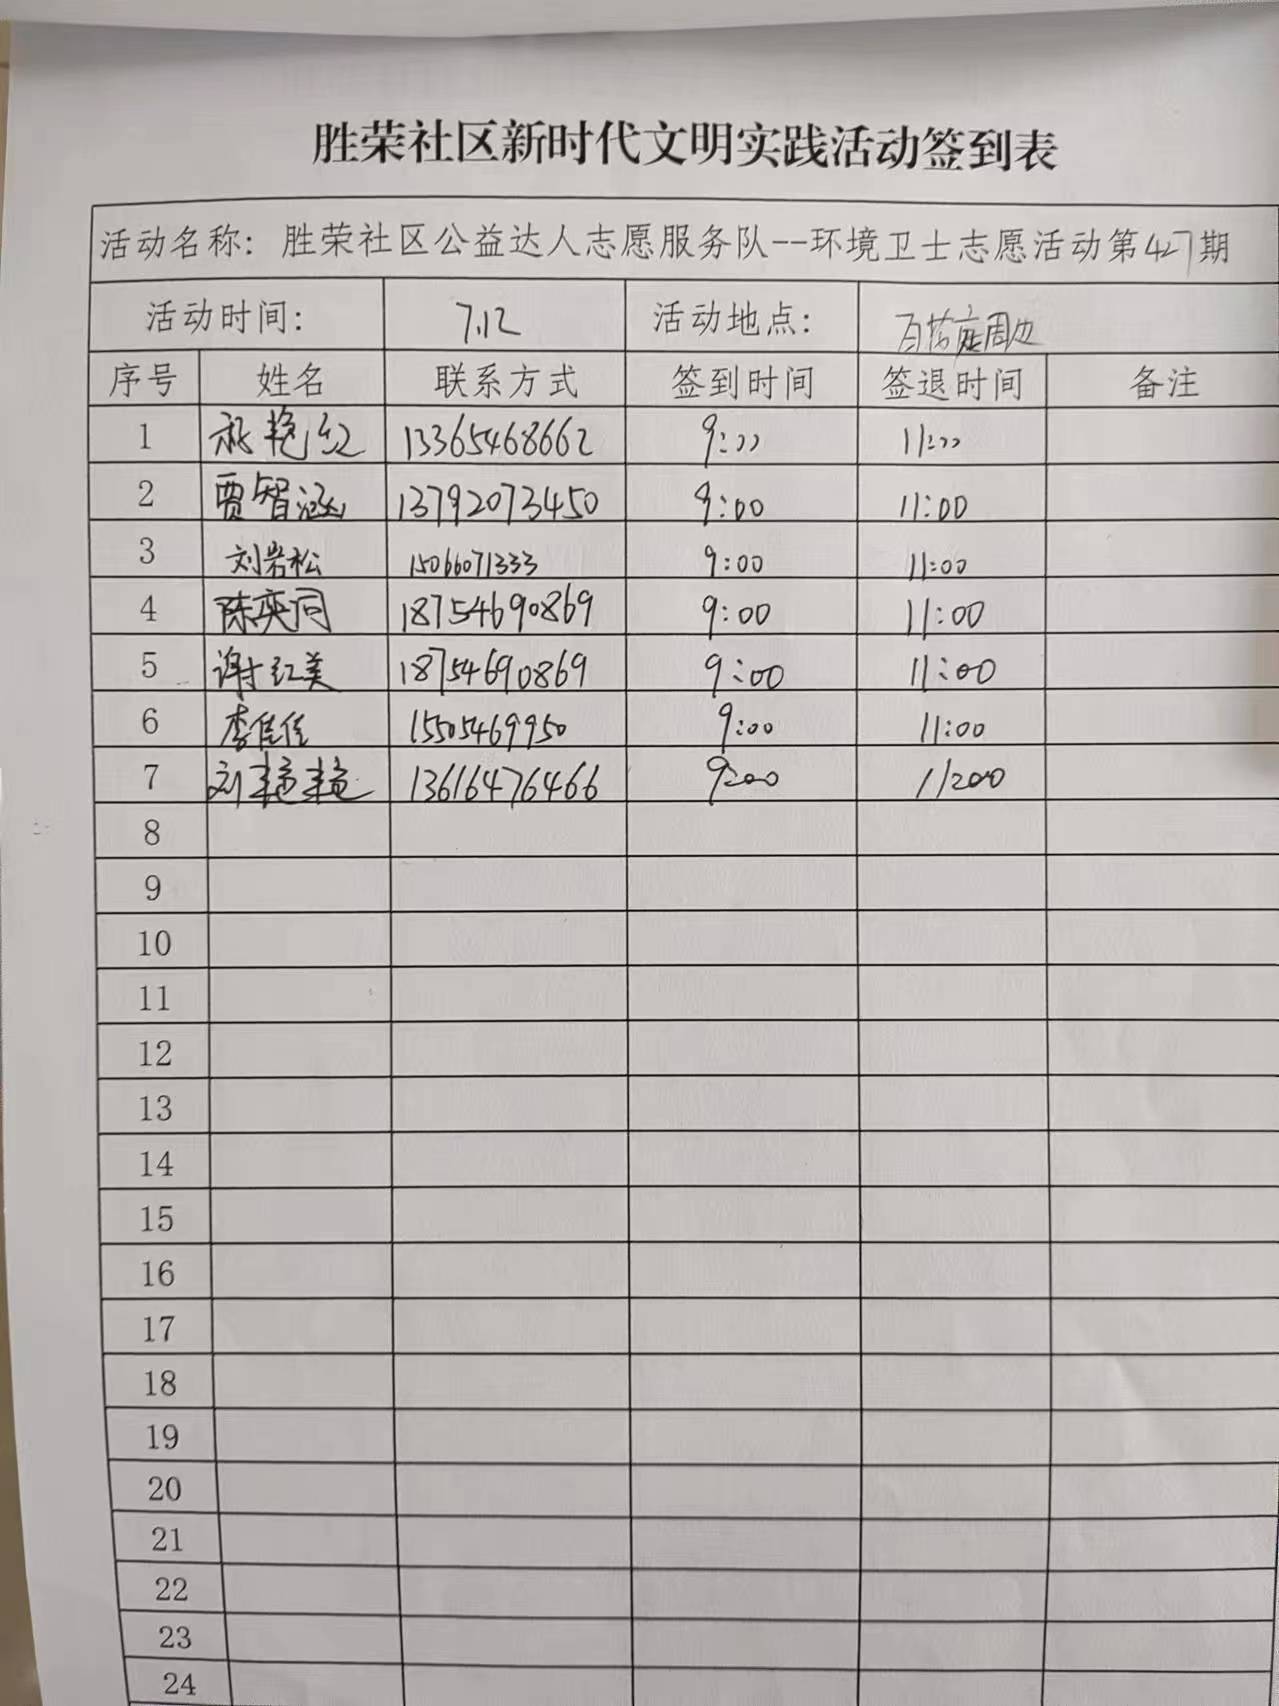 胜荣社区新时代文明实践活动签到表
活动名称: 胜荣社区公益达人志愿服务队--环境卫士志愿活动第427期
活动时间: 7.12 活动地点: 百荟庭周边
序号 姓名 联系方式 签到时间 签退时间 备注
1 艳红 13365468662 9:00 11:00
2 贾智涵 13792073450 9:00 11:00
3 刘岩松 15066071333 9:00 11:00
4 陈奕同 18754690869 9:00 11:00
5 谢红美 18754690869 9:00 11:00
6 李佳佳 15505469950 9:00 11:00
7 刘艳艳 13616476466 9:00 11:00
8
9
10
11
12
13
14
15
16
17
18
19
20
21
22
23
24